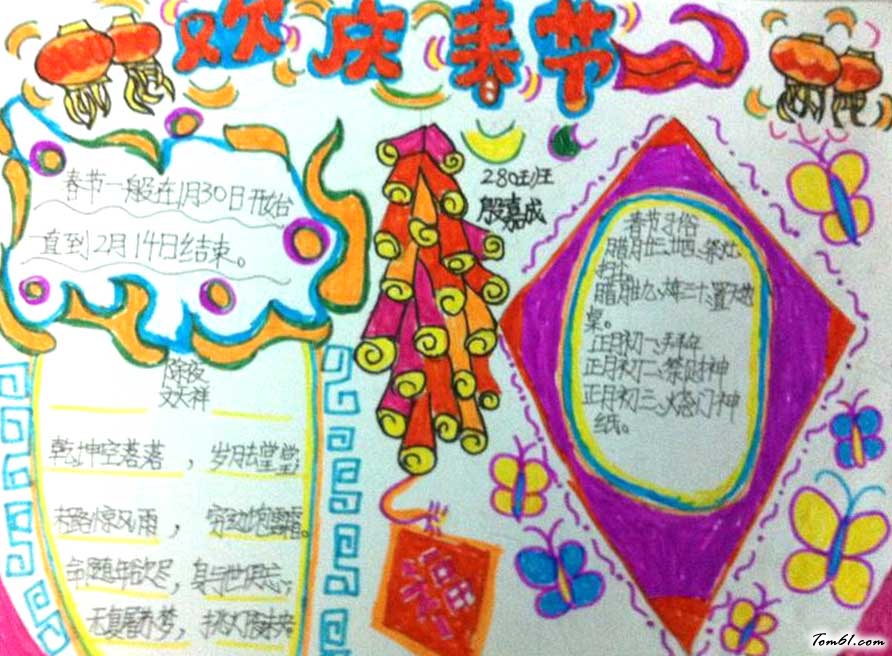 欢庆春节
春节一般在1月30日开始
一直到2月14日结束。
280班
殷嘉成
除夜
文天祥
乾坤空落落，岁月去堂堂；
末路惊风雨，穷边饱雪霜。
命随年欲尽，身与世俱忘；
无复屠苏梦，挑灯夜未央
春节习俗
腊月廿三、廿四、祭灶、
扫尘
腊月廿九、年三十、置天地
桌。
正月初一、拜年
正月初二、祭财神
正月初三、烧门神
纸。
Tom61.com